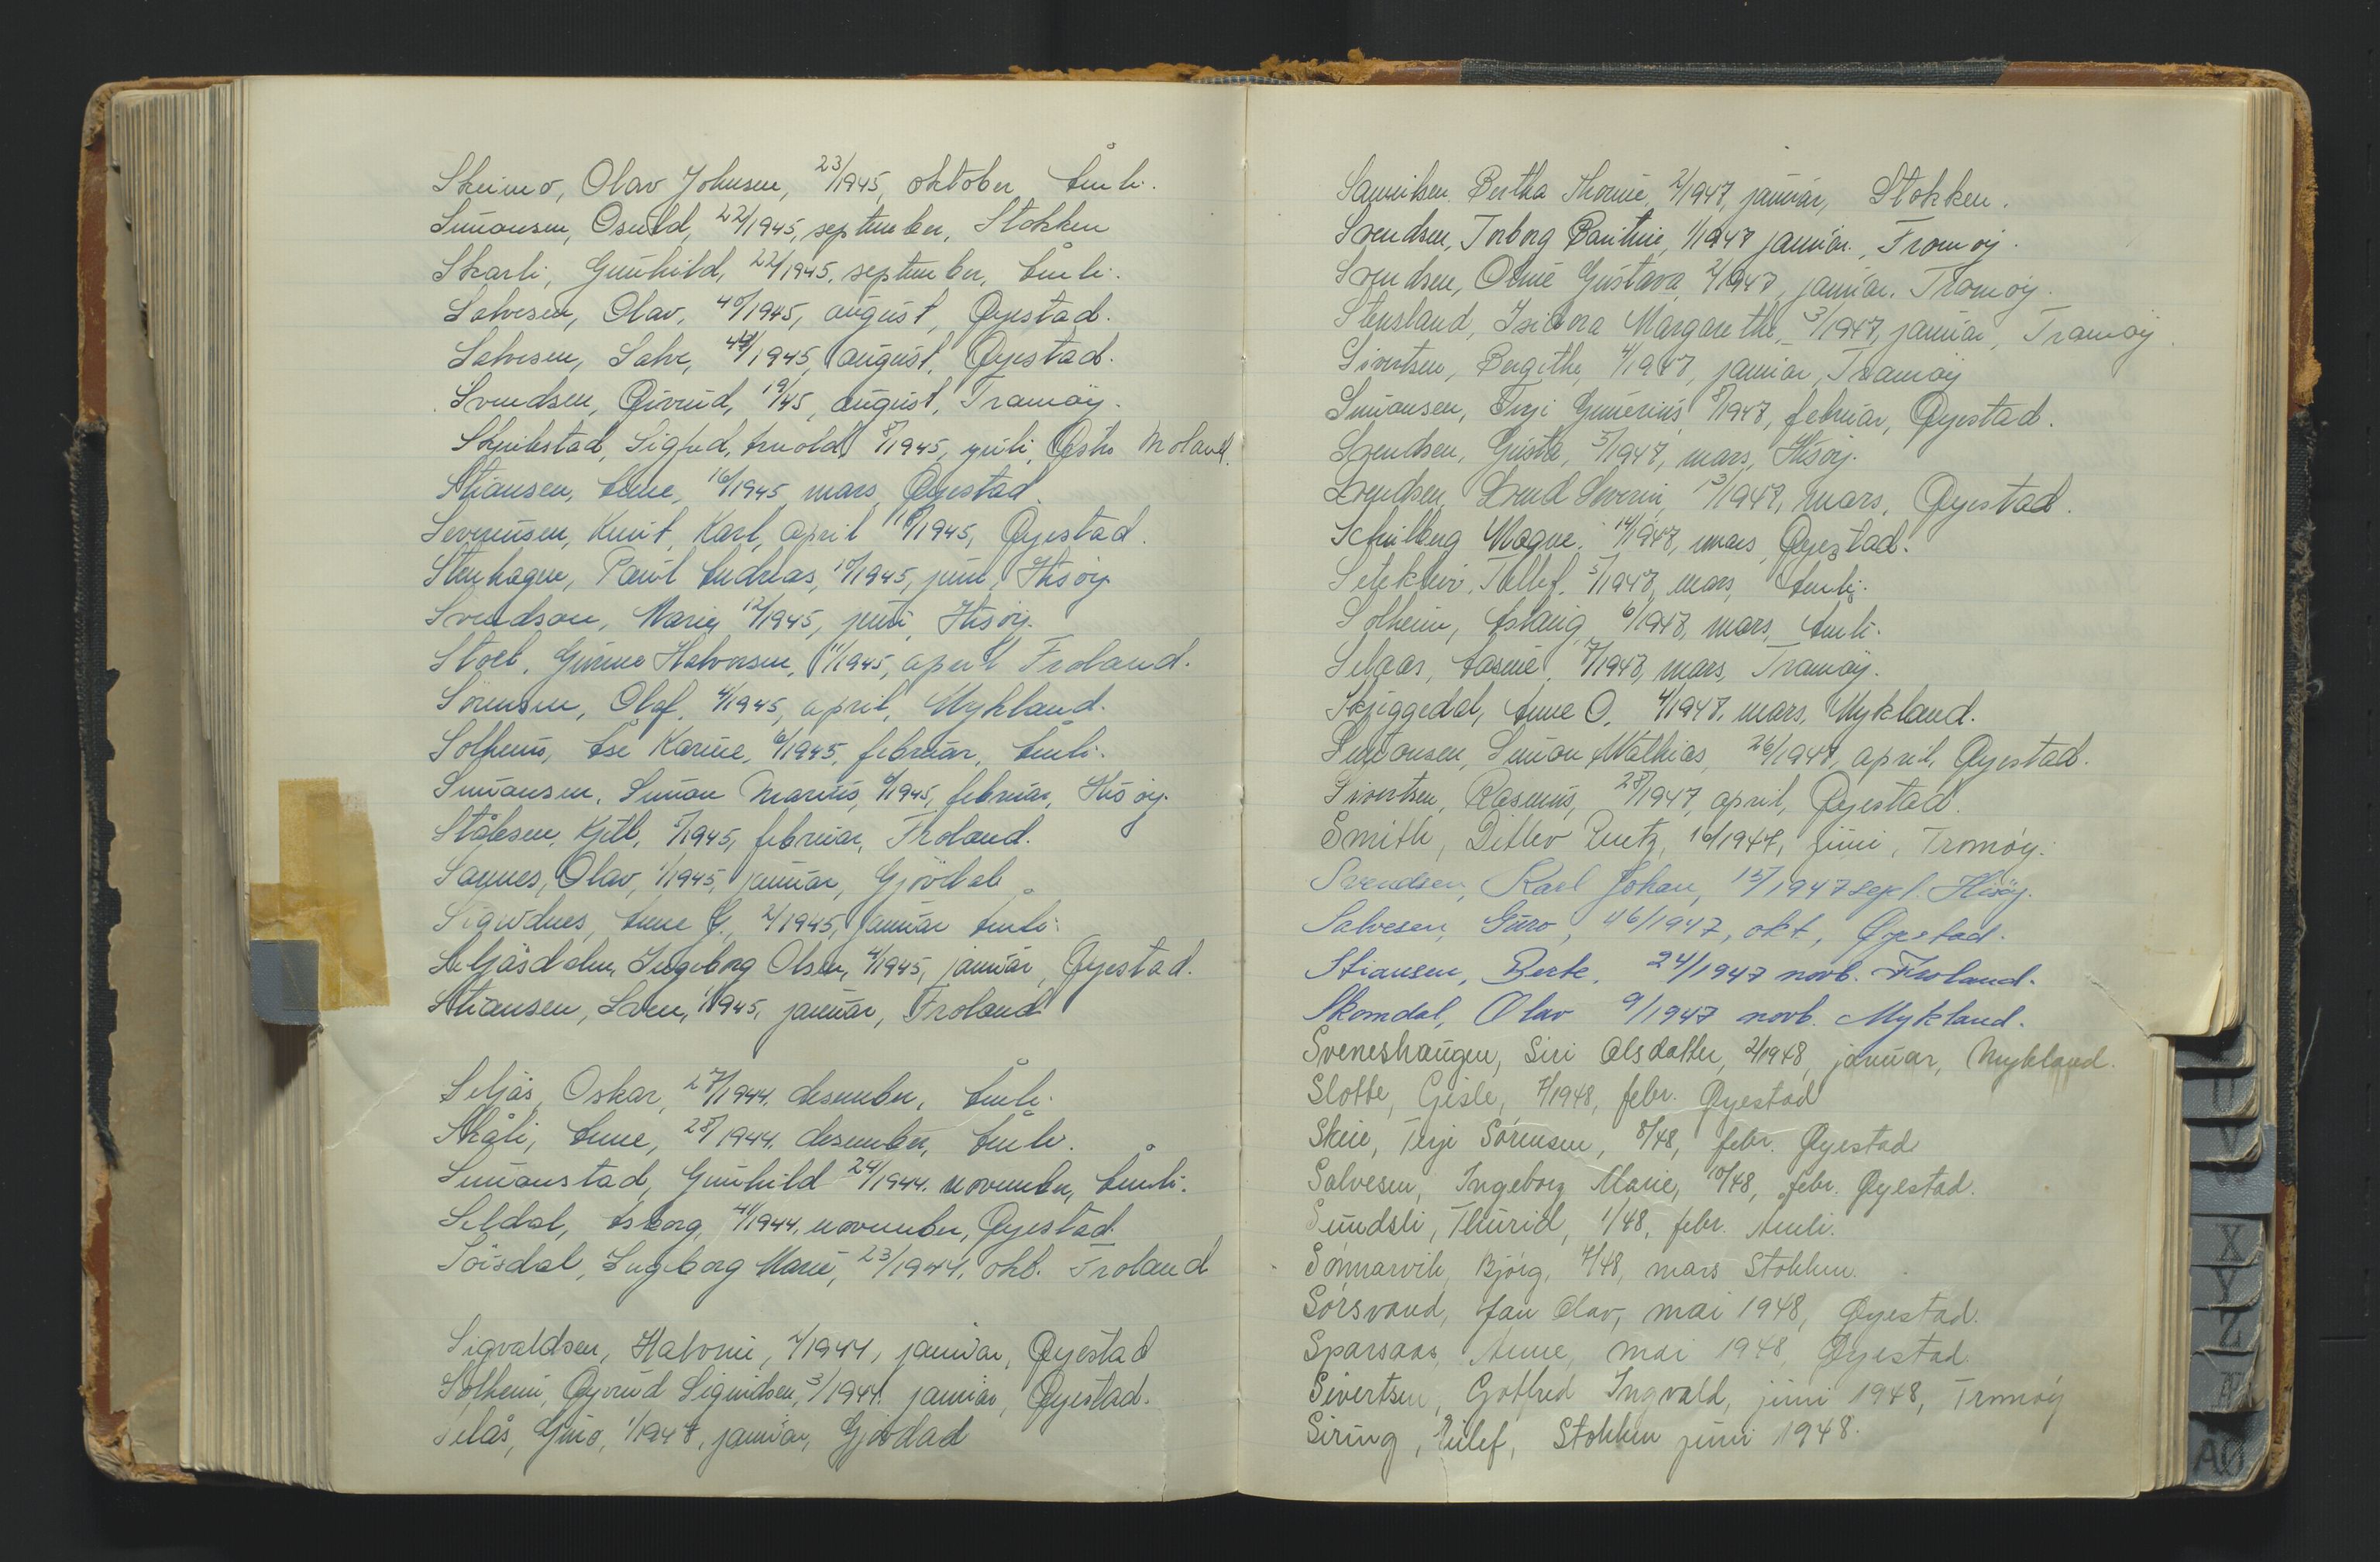 Skeimo, Olav Johnsen, 23/1945, oktober Åmli.
Simonsen, Osuld, 22/1945, september, Stokken
Skarli, Gunhild, 22/1945, september, Åmli.
Salvesen, Olav, 40/1945, august, Øyestad.
Salvesen, Salve, 44/1945, august, Øyestad.
Svendsen, Øivind, 19/45, august, Tromøy.
Sigfred, Arnold 8/1945, juli, Østre Moland.
Stiansen, Anne, 16/1945 mars, Øyestad.
Severinsen, Knut, Karl, april 18/1945, Øyestad.
Stenhagen, Paul Andreas, 10/1945, juni, Hisøy
Svendsen, Marie, 12/1945, juni, Hisøy.
Stoel, Gunne Halvorsen, 11/1945, april Froland.
Sörensen, Olaf, 4/1945, april, Mykland.
Solheim, Åse Karine, 6/1945, februar, Åmli.
Simonsen, Simon Marius, 6/1945, februar, Hisøy.
Stålesen, Kjetil, 7/1945, februar, Froland.
Sannes, Olav, 1/1945, januar, Gjövdal.
Anne G., 2/1945, januar Åmli.
Seljåsdalen, Ingeborg Olsen, 4/1945, januar, Øyestad.
Stiansen, Karen, 1/1945, januar, Froland
Seljås, Oskar, 27/1944, desember, Åmli.
Skåli, Anne, 28/1944, desember, Åmli.
Simonstad, Gunhild 24/1944. november, Åmli.
Seldal, Åsborg, 41/1944, november, Øyestad.
Ingeborg Marie, 23/1944, okt. Froland
Sigvaldsen, Halvine, 2/1944, januar, Øyestad
Solheim, Øyvind Sigurdsen, 3/1944. januar, Øyestad.
Selås, Guro, 1/1947, januar, Gjövdal
Samuelsen. Bertha Thomine, 2/1947, januar, Stokken.
Svendsen, Torborg 1/1947 januar, Tromøy.
Svendsen, Oline Gustava, 2/1947, januar. Tromøy.
Stensland, Isidora Margarethe, 3/1947, januar, Tromøy.
Sivertsen, Bergithe, 4/1947, januar, Tromøy
Simonsen, Terji Gunerius, 8/1947, februar, Øyestad.
Svendsen, Gusta, 5/1947, mars, Hisøy.
Svendsen, Svend Severin, 13/1947, mars, Øyestad.
Schulberg Mogne, 14/1947, mars, Øyestad.
Tellef, 5/1947, mars, Åmli.
Solheim, Aslaug, 6/1947, mars, Åmli.
Selaas, Aasine, 7/1947, mars, Tromøy.
Skjeggedal, Anne O. 4/1947, mars, Mykland.
Simonsen, Simon Mathias, 26/1947, april, Øyestad.
Sivertsen, Rasmus, 28/1947, april, Øyestad.
Smith, Ditlev Lentz, 16/1947, juni, Tromøy.
Svendsen, Karl Johan, 15/1947 sept. Hisøy.
Salvesen, Guro, 46/1947, okt, Øyestad.
Stiansen, Berte, 24/1947 novb. Froland.
Skomdal, Olav 9/1947 novb. Mykland.
Sveneshaugen, Siri Olsdatter, 2/1948, januar, Mykland.
Slotte, Gisle, 7/1948, febr. Øyestad
Skeie, Terje Sörensen, 8/48, febr. Øyestad
Salvesen, Ingeborg Marie, 10/48, febr. Øyestad.
Sundsli, Thurid, 1/48, febr. Åmli.
Sönnarvik, Bjørg, 4/48, mars Stokken.
Sørsvand, Jan Olav, mai 1948, Øyestad.
Sparsaas, Anne, mai 1948, Øyestad.
Sivertsen, Gotfred Ingvald, juni 1948, Tromøy
Siring, Eilef, Stokken juni 1948.
U
V
X
Y
Z
Æ
AØ